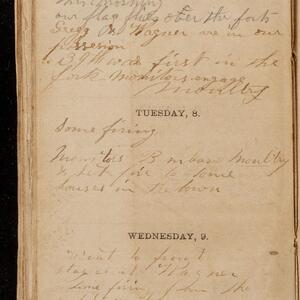 our flag flies over the forts
Gregg & Wagner we in our
possesion
39th was first in the
fort monitors engage
Moultry
TUESDAY, 8.
Some firing
Monitors Bombard Moultry
& set fire to some
houses in the town
WEDNESDAY, 9.
Went to front
Wagner
some firing from the